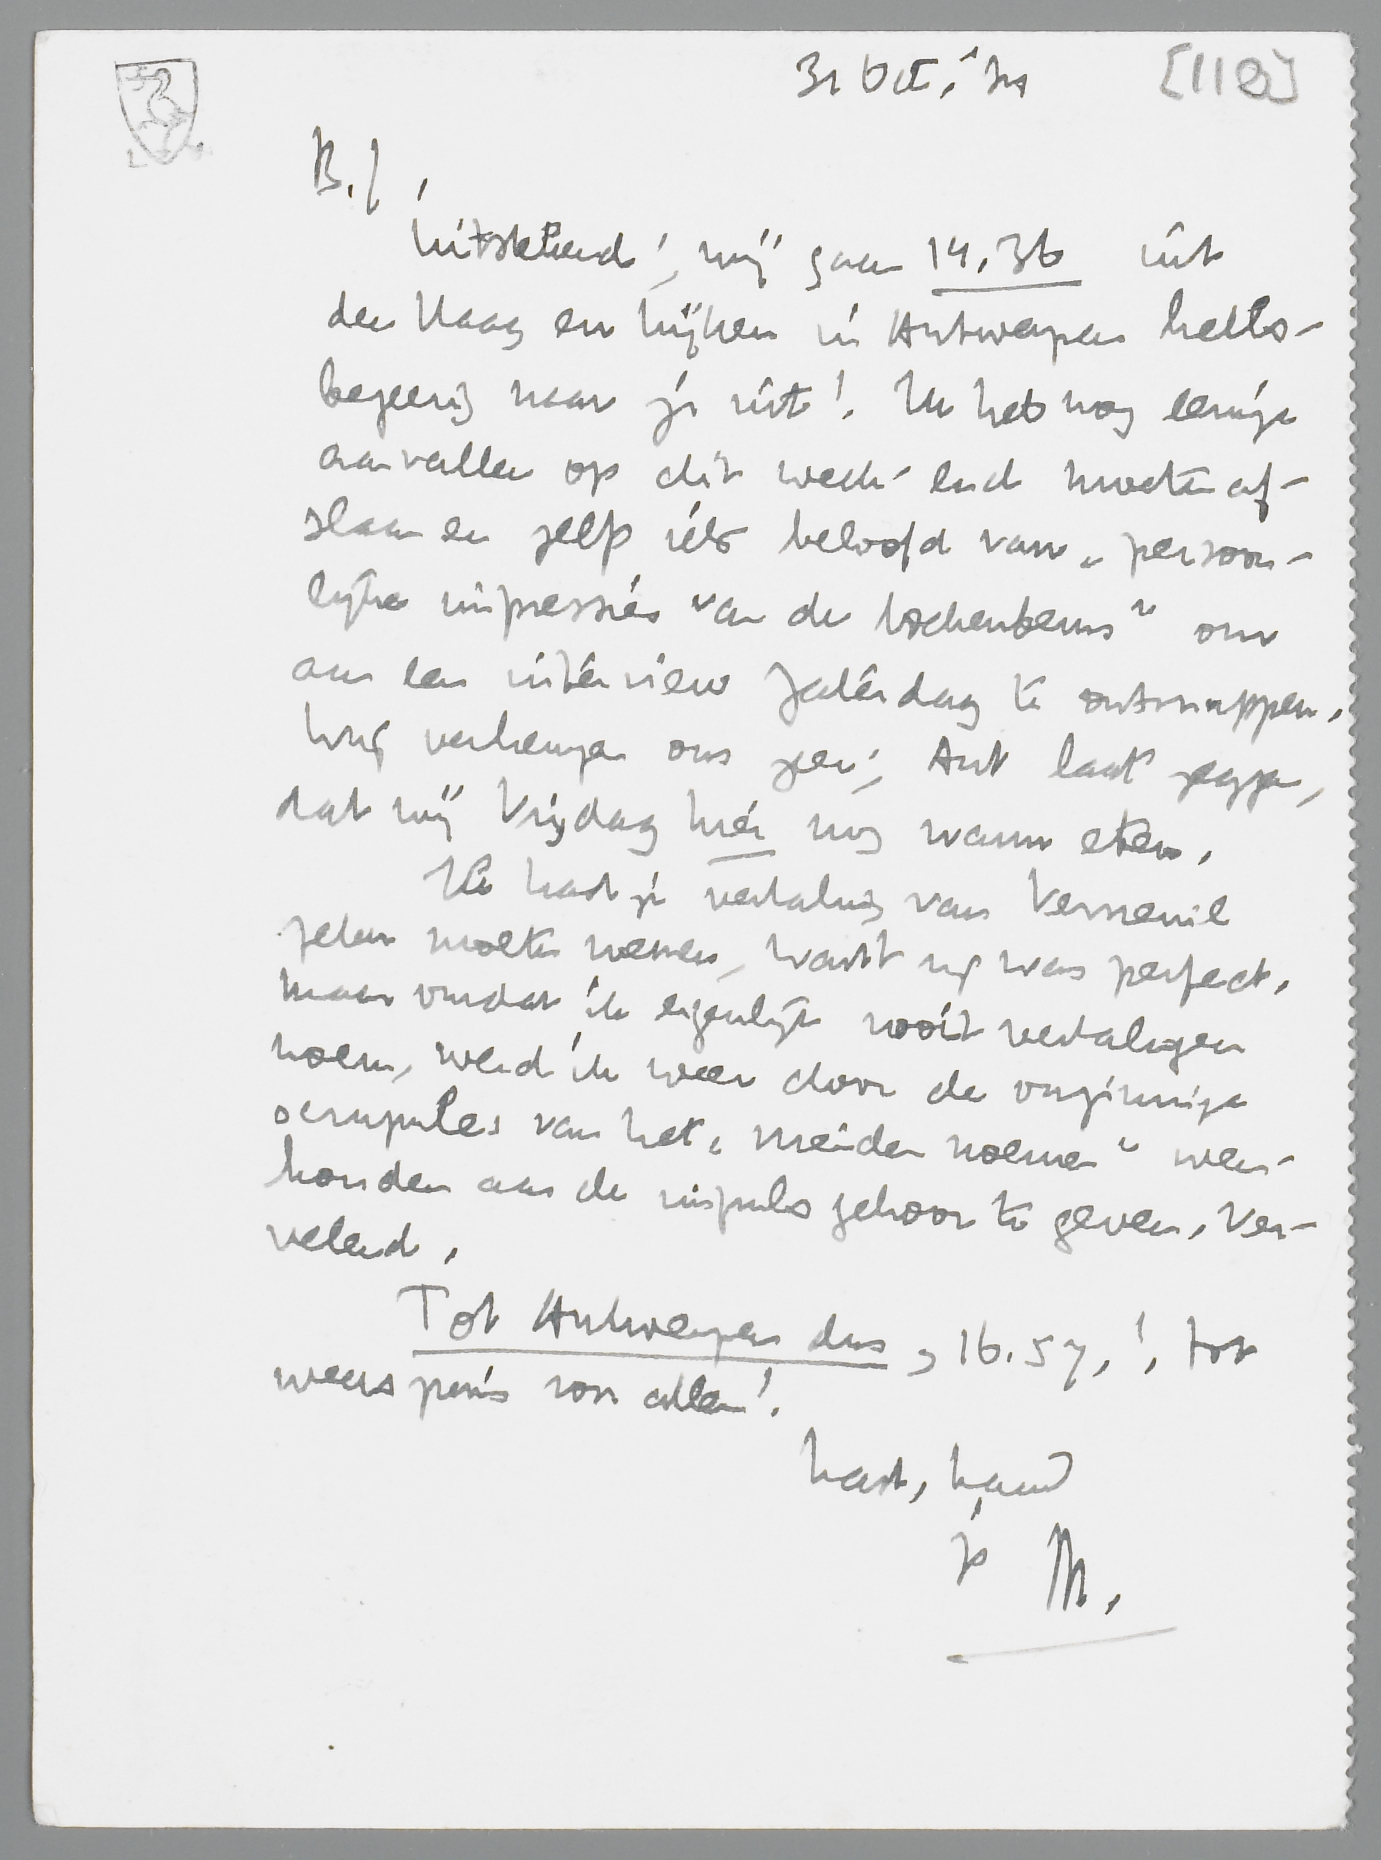 31 Oct. '34 [118]
B.J.,
Uitstekend! wij gaan 14.36 uit
den Haag en kijken in Antwerpen hals-
begeerig naar je uit! Ik heb nog eenige
aanvallen op dit week-end moeten af-
slaan en zelfs iets beloofd van „persoon-
lijke impressies van de
aan een interview Zaterdag te ontsnappen.
Wij verheugen ons zeer; Ant laat zeggen,
dat wij Vrijdag hier nog warm eten.
Ik had je vertaling van Verneuil
zeker moeten noemen, want zij was perfect.
Maar omdat ik eigenlijk nooit vertalingen
noem, werd ik weer door de onzinnige
scrupules van het „meiden noemen" weer-
houden aan de impuls gehoor te geven. Ver-
velend.
Tot Antwerpen dus, 16.57.! tot
weerspons van allen!
hart. hand
je M.